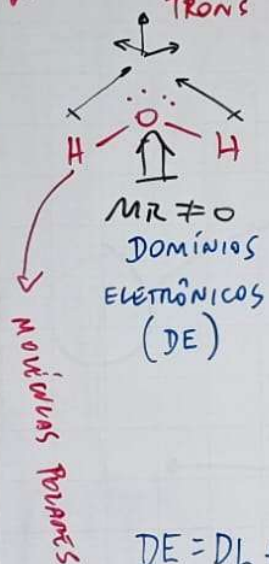 TRONS
O
H H
MR ≠ 0
DOMÍNIOS
ELETRÔNICOS
(DE)
MOLÉCULAS POLARES
DE = DL